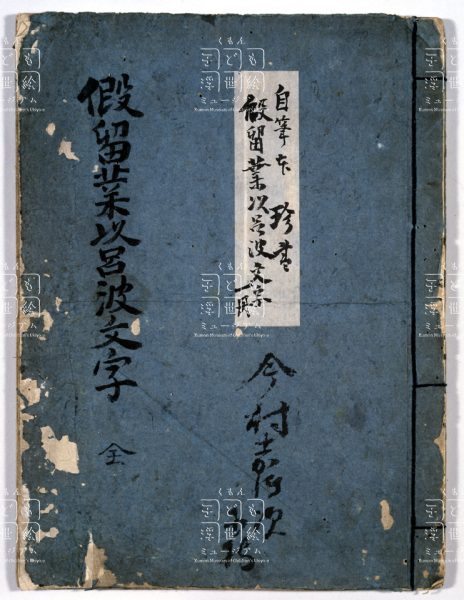 自筆本 珍書
假留業以呂波文字 一冊
今村
假留業以呂波文字 全
くもん
子ども浮世絵
ミュージアム
Kumon Museum of Children's Ukiyo-e